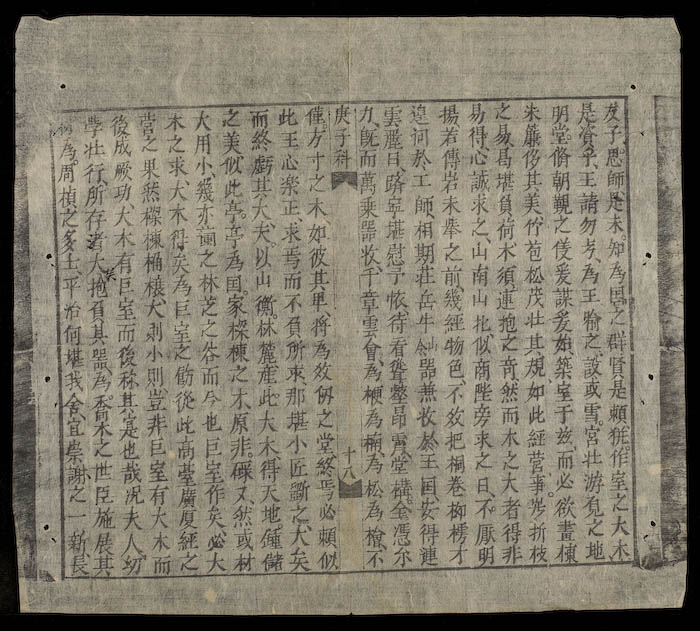 友子恩師是未知為国之群賢是頼作室之大木
是資乎王請勿為王喻之設或雪宮壮游覓之地
明堂脩朝覲之爰謀爰始築室于兹而必欲畫棟
朱簾侈其美竹苞松茂壮其規如此經营事折枝
之易曷堪負荷木須連抱之竒然而木之大者得非
易得心誠求之山南山北似南陛旁求之日不厭明
揚若傅岩未舉之前幾經物色不效把桐卷柳樗才
遑问於工師相期荘岳牛山器兼收於王囯安得連
雲麗日路寧堪慰予懷待看聳壑昂霄堂構全憑尔
力旣而萬乗器收千章雲會為楩為楠為松為檜不
庚子科 十八
僅方寸之木如彼其卑将為效明之堂終焉必頼似
此王心楽正求焉而不負所求那堪小匠斵之大矣
而終虧其大夫以山衡林麓產此大木得天地鍾儲
之美似此亭亭為国家樑棟之才原非碌又然或材
大用小幾亦蘭之林芝之谷而今也巨室作矣必大
木之求大木得矣為巨室之飭從此髙臺廣厦經之
营之果然樑棟桷榱大剤小則豈非巨室有大木而
後成厥功大木有巨室而後称其是也哉虎夫人㓜
學壮行所存者大抱負其器為喬木之世臣施展其
材為周楨之多士平治何堪我舍宜崇謝之一新長